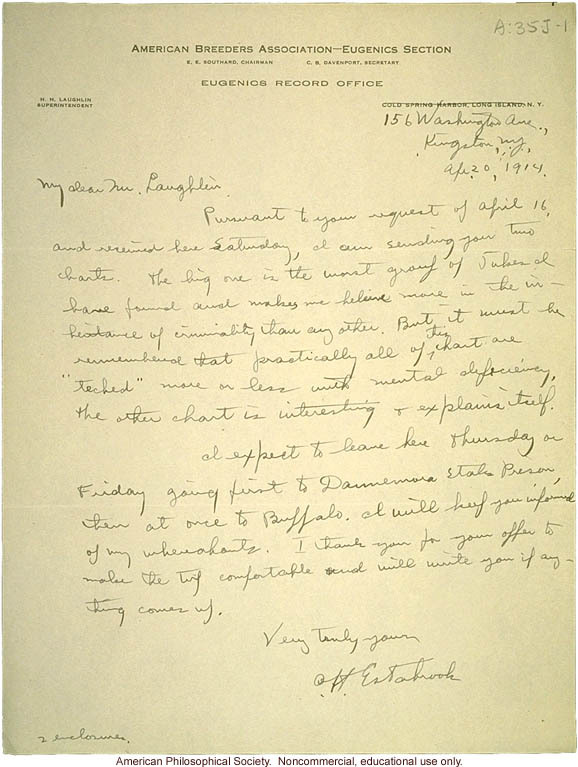 A:35J-1
AMERICAN BREEDERS ASSOCIATION—EUGENICS SECTION
E. E. SOUTHARD, CHAIRMAN C. B. DAVENPORT, SECRETARY
EUGENICS RECORD OFFICE
H. H. LAUGHLIN
SUPERINTENDENT
COLD SPRING HARBOR, LONG ISLAND, N. Y.
156 Washington Ave.,
Kingston, N.Y.,
Ap. 20, 1914.
My dear Mr. Laughlin
Pursuant to your request of April 16,
and received here Saturday, I am sending you two
charts. The big one is the worst group of Jukes I
have found and makes me believe more in the in-
heritance of criminality than any other. But it must be
remembered that practically all of this chart are
"teched" more or less with mental deficiency,
The other chart is interesting & explains itself.
I expect to leave here Thursday or
Friday going first to Dannemora State Prison,
then at once to Buffalo. I will keep you informed
of my whereabouts. I thank you for your offer to
make the trip comfortable and will write you if any-
thing comes up.
Very truly yours
A.H. Estabrook
2 enclosures.
American Philosophical Society. Noncommercial, educational use only.